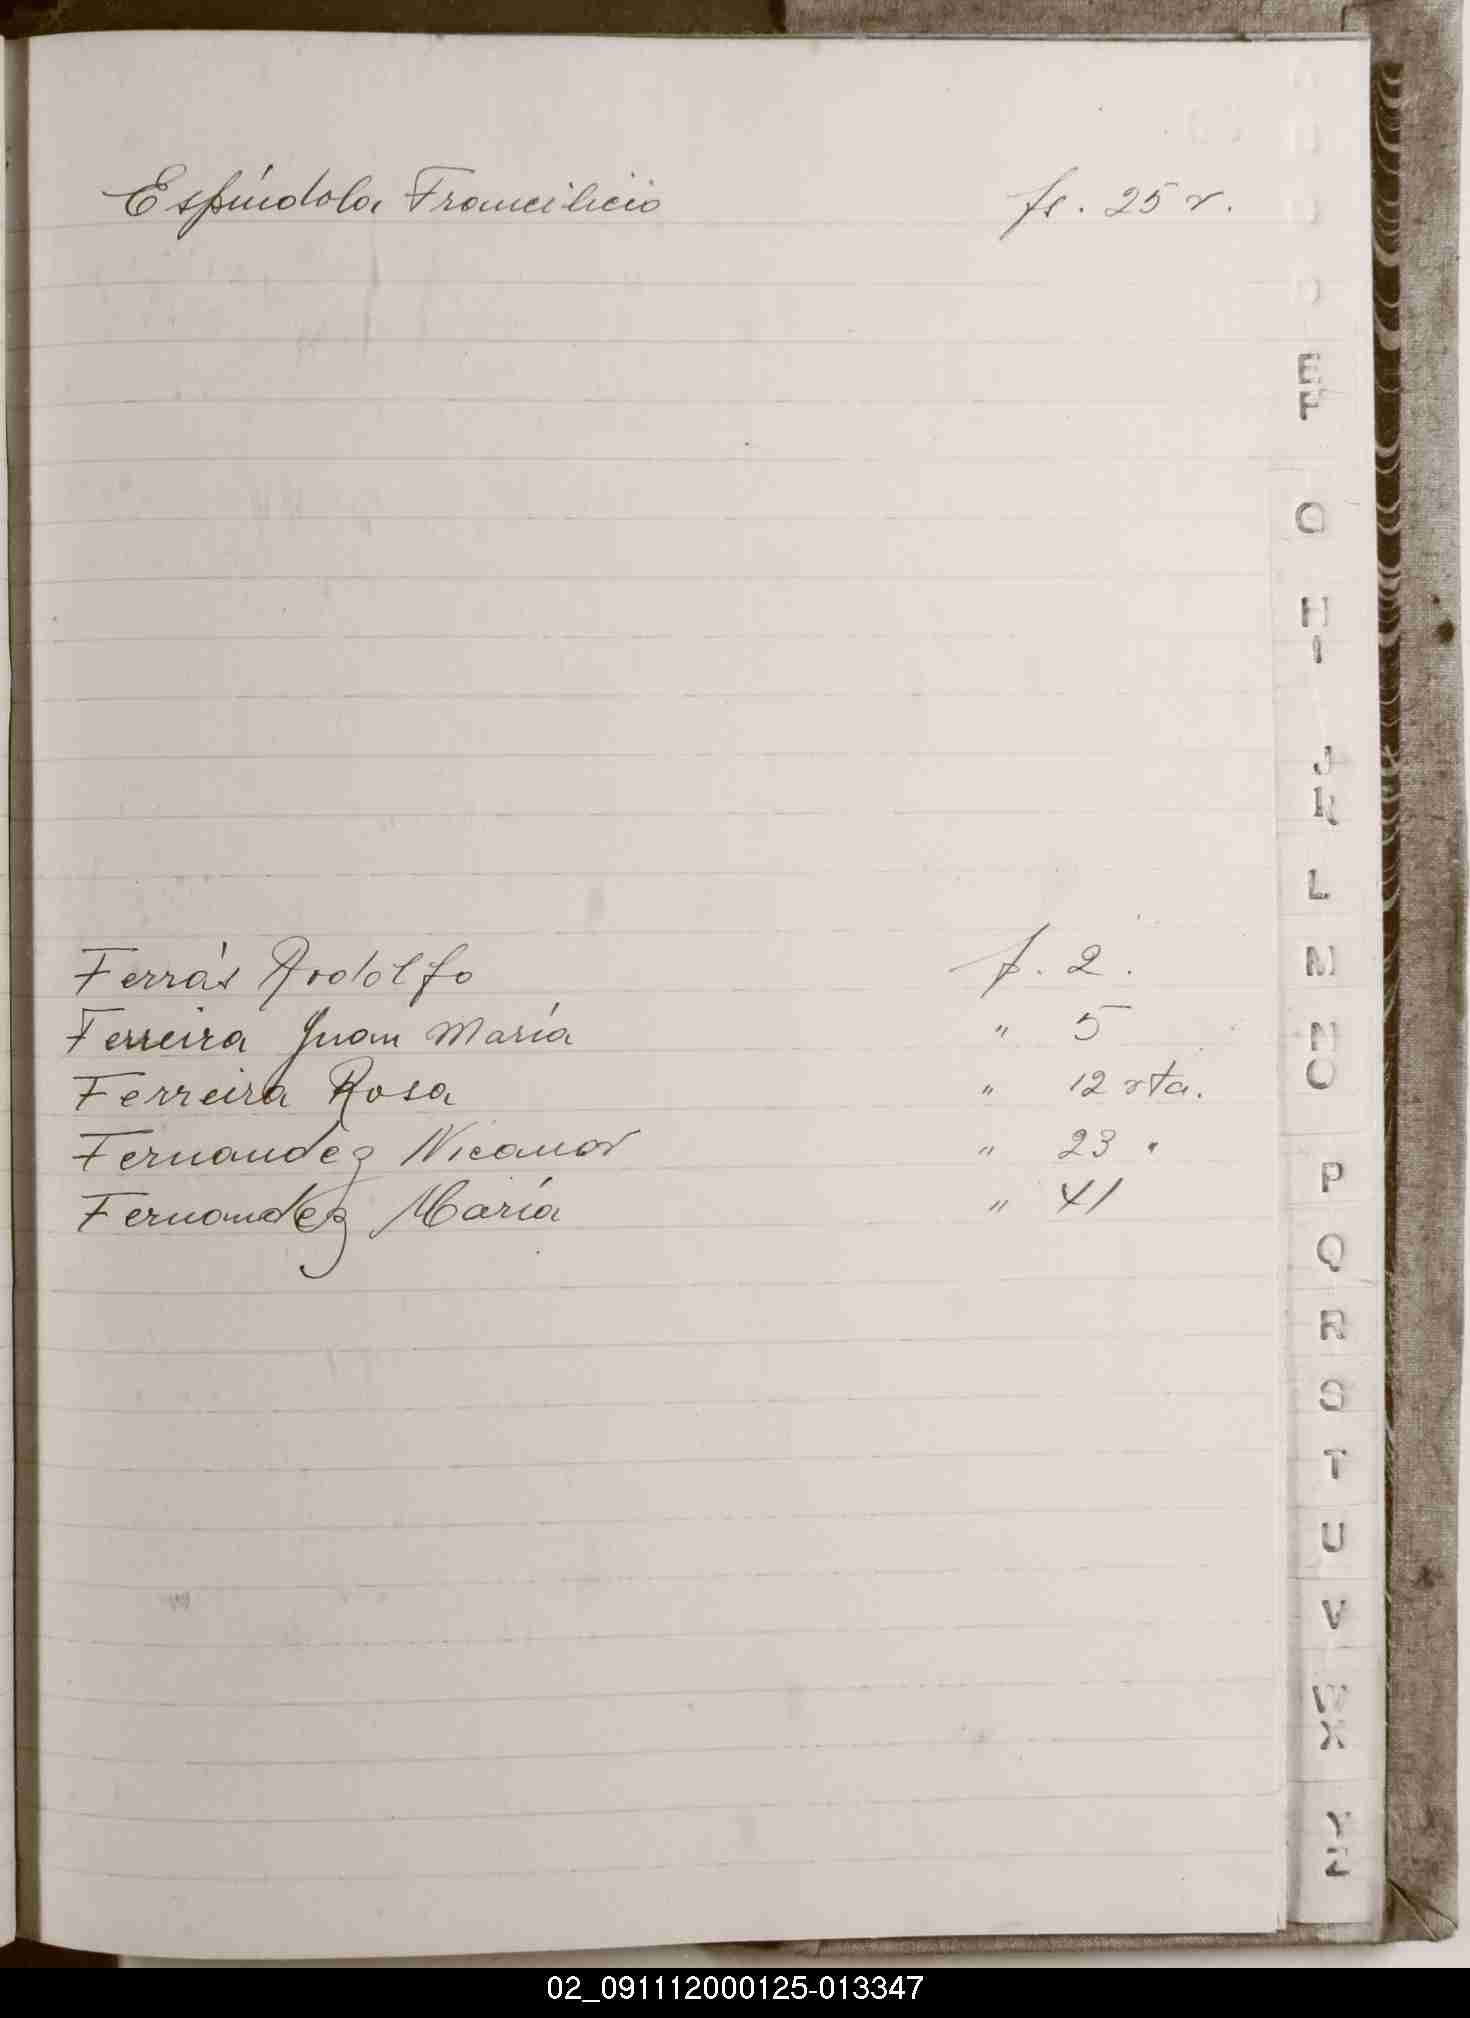 Espíndola Francilicio fs. 25 v.
E
F
G
H
I
J
K
L
Ferrás Rodolfo f. 2.
M
Ferreira Juan María " 5
N
Ferreira Rosa " 12 vta.
O
Fernandez Nicanor " 23 "
P
Fernandez María " 41
Q
R
S
T
U
V
W
X
Y
Z
02_091112000125-013347